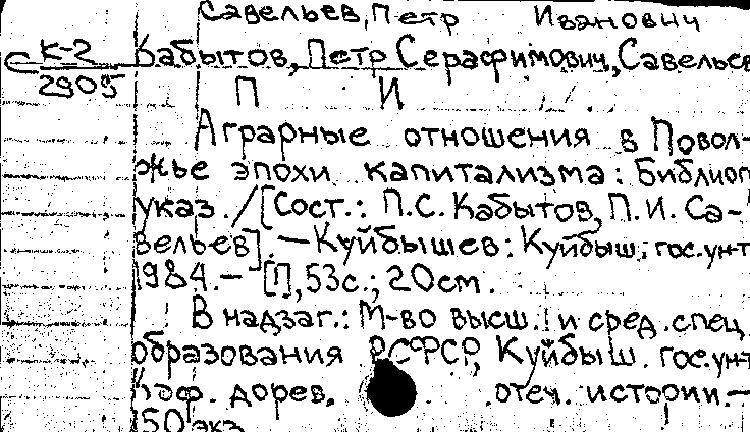 Савельев, Петр Иванович
К-2 Кабытов, Петр Серафимович, Савельев
2905 П И
Аграрные отношения в Повол-
жье эпохи капитализма: Библиог
указ. / [Сост.: П.С. Кабытов, П.И. Са-
вельев]. — Куйбышев: Куйбыш. гос. ун-т
1984. — [1], 53с.; 20см.
В надзаг.: М-во высш. и сред. спец
образования РСФСР, Куйбыш. гос. ун-т
Каф. дорев. отеч. истории. —
150 экз